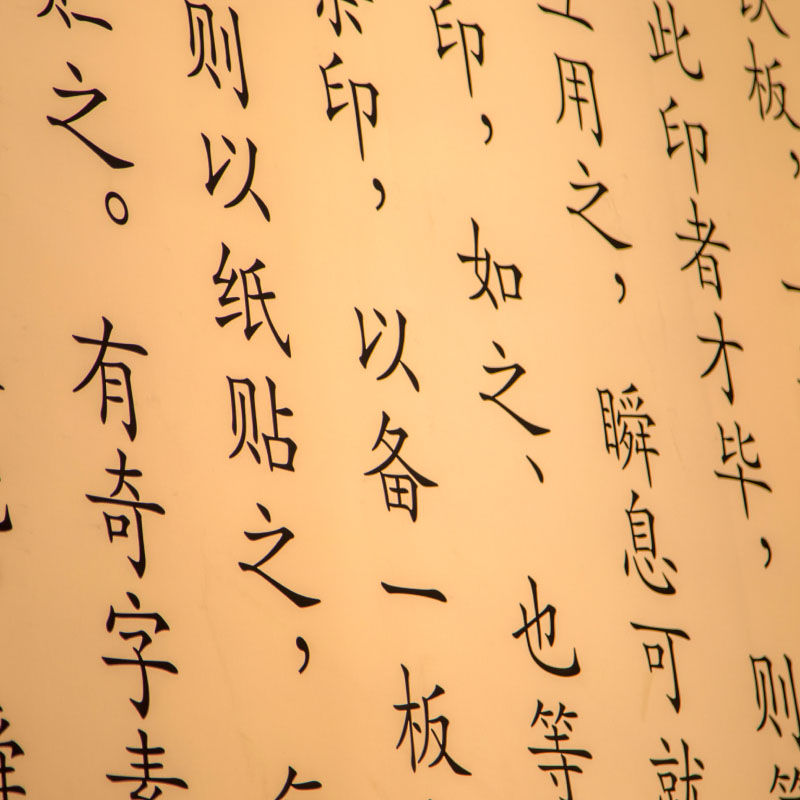 板，
此印者才毕，则
用之，瞬息可就
印，如之、也等
印，以备一板
则以纸贴之，
之。有奇字素